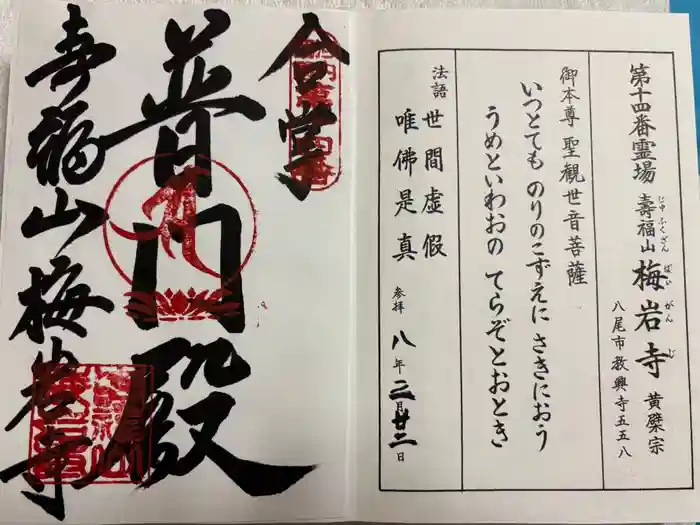 第十四番霊場 壽福山 梅岩寺 黄檗宗
じゅふくざん ばいがんじ
八尾市教興寺五五八
御本尊 聖観世音菩薩
いつとても のりのこずえに さきにおう
うめといわおの てらぞとおとき
法語 世間虚假
唯佛是真
参拝 八年二月廿二日
合掌
普門殿
壽福山梅岩寺